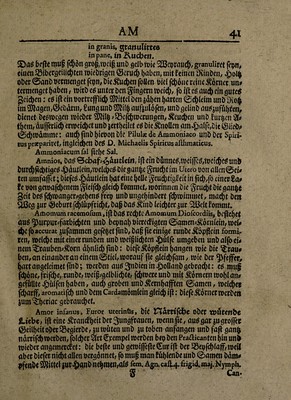 AM
41
in granis, granulirtes
in pane, in Kuchen.
Das beste muß schön groß, weiß und gelb wie Weyrauch, granuliret seyn,
einen Bibergeilichten wiedrigen Geruch haben, mit keinen Rinden, Holtz
oder Sand vermenget seyn, die Kuchen sollen viel schöne reine Körner untermenget haben, wird es unter den Fingern weich, so ist es auch ein gutes
Zeichen: es ist ein vortrefflich Mittel den zähen harten Schleim und Rotz
im Magen, Gedärm, Lung und Miltz aufzulösen, und gelind auszuführen,
dienet deswegen wieder die Miltz-Beschwerungen, Keuchen und kurtzen Athem, äusserlich erweichet und zertheilet es die Knollen am Halse, die Glied-
Schwämme: auch sind hievon die Pilulæ de Ammoniaco und der Spiritus præparitet, ingleichen D. Michaelis Spiritus asthmaticus.
Ammoniacum sal siehe Sal.
Amnios, das Schaf-Häutlein, ist ein dünnes, weisses, weiches und
durchsichtiges Häutlein, welches die gantze Frucht im Utero von allen Seiten umfasset; dieses Häutlein hat eine helle Feuchtigkeit in sich, so einer Lake von gewaschenem Fleisch gleich kommet, worinnen die Frucht die gantze
Zeit des schwangergehens frey und ungehindert schwimmet, macht den
Weg zur Geburt schlüpfricht, daß das Kind leichter zur Welt kommt.
Amomum racemosum, ist das rechte Amomum Dioscoridis, bestehet
aus Purpur-farbichten und beynah viereckigen Samen-Körnlein, welche so accurat zusammen gesetzt sind, daß sie einige runde Köpflein formiren, welche mit einer runden und weißlichen Hülse umgeben und also einem Trauben-Korn ähnlich sind: diese Köpflein hangen wie die Trauben, an einander an einem Stiel, worauf sie gleichsam, wie der Pfeffer,
hart angeleimet sind; werden aus Indien in Holland gebracht: es muß
schöne, frische, runde, weißgelblichte, schwere und mit Körnern wohl angefüllte Hülsen haben, auch groben und Kernhafften Samen, welcher
scharff, aromatisch und dem Cardamömlein gleich ist: diese Körner werden
zum Theriac gebrauchet.
Amor insanus, Furor uterinus, die Närrische oder wütende
Liebe: ist eine Kranckheit der Jungfrauen, wenn sie, aus gar zu grosser
Geilheit oder Begierde, zu wüten und zu toben anfangen und fast gantz
närrisch werden, solcher Art Exempel werden bey den Practicanten hin und
wieder angemercket: die beste und gewisseste Cur ist der Beyschlaff, weil
aber dieser nicht allen vergönnet, so muß man kühlende und Samen dämpfende Mittel zur Hand nehmen, als sem. Agn. cast. 4. frigid. maj. Nymph.
F
Can-